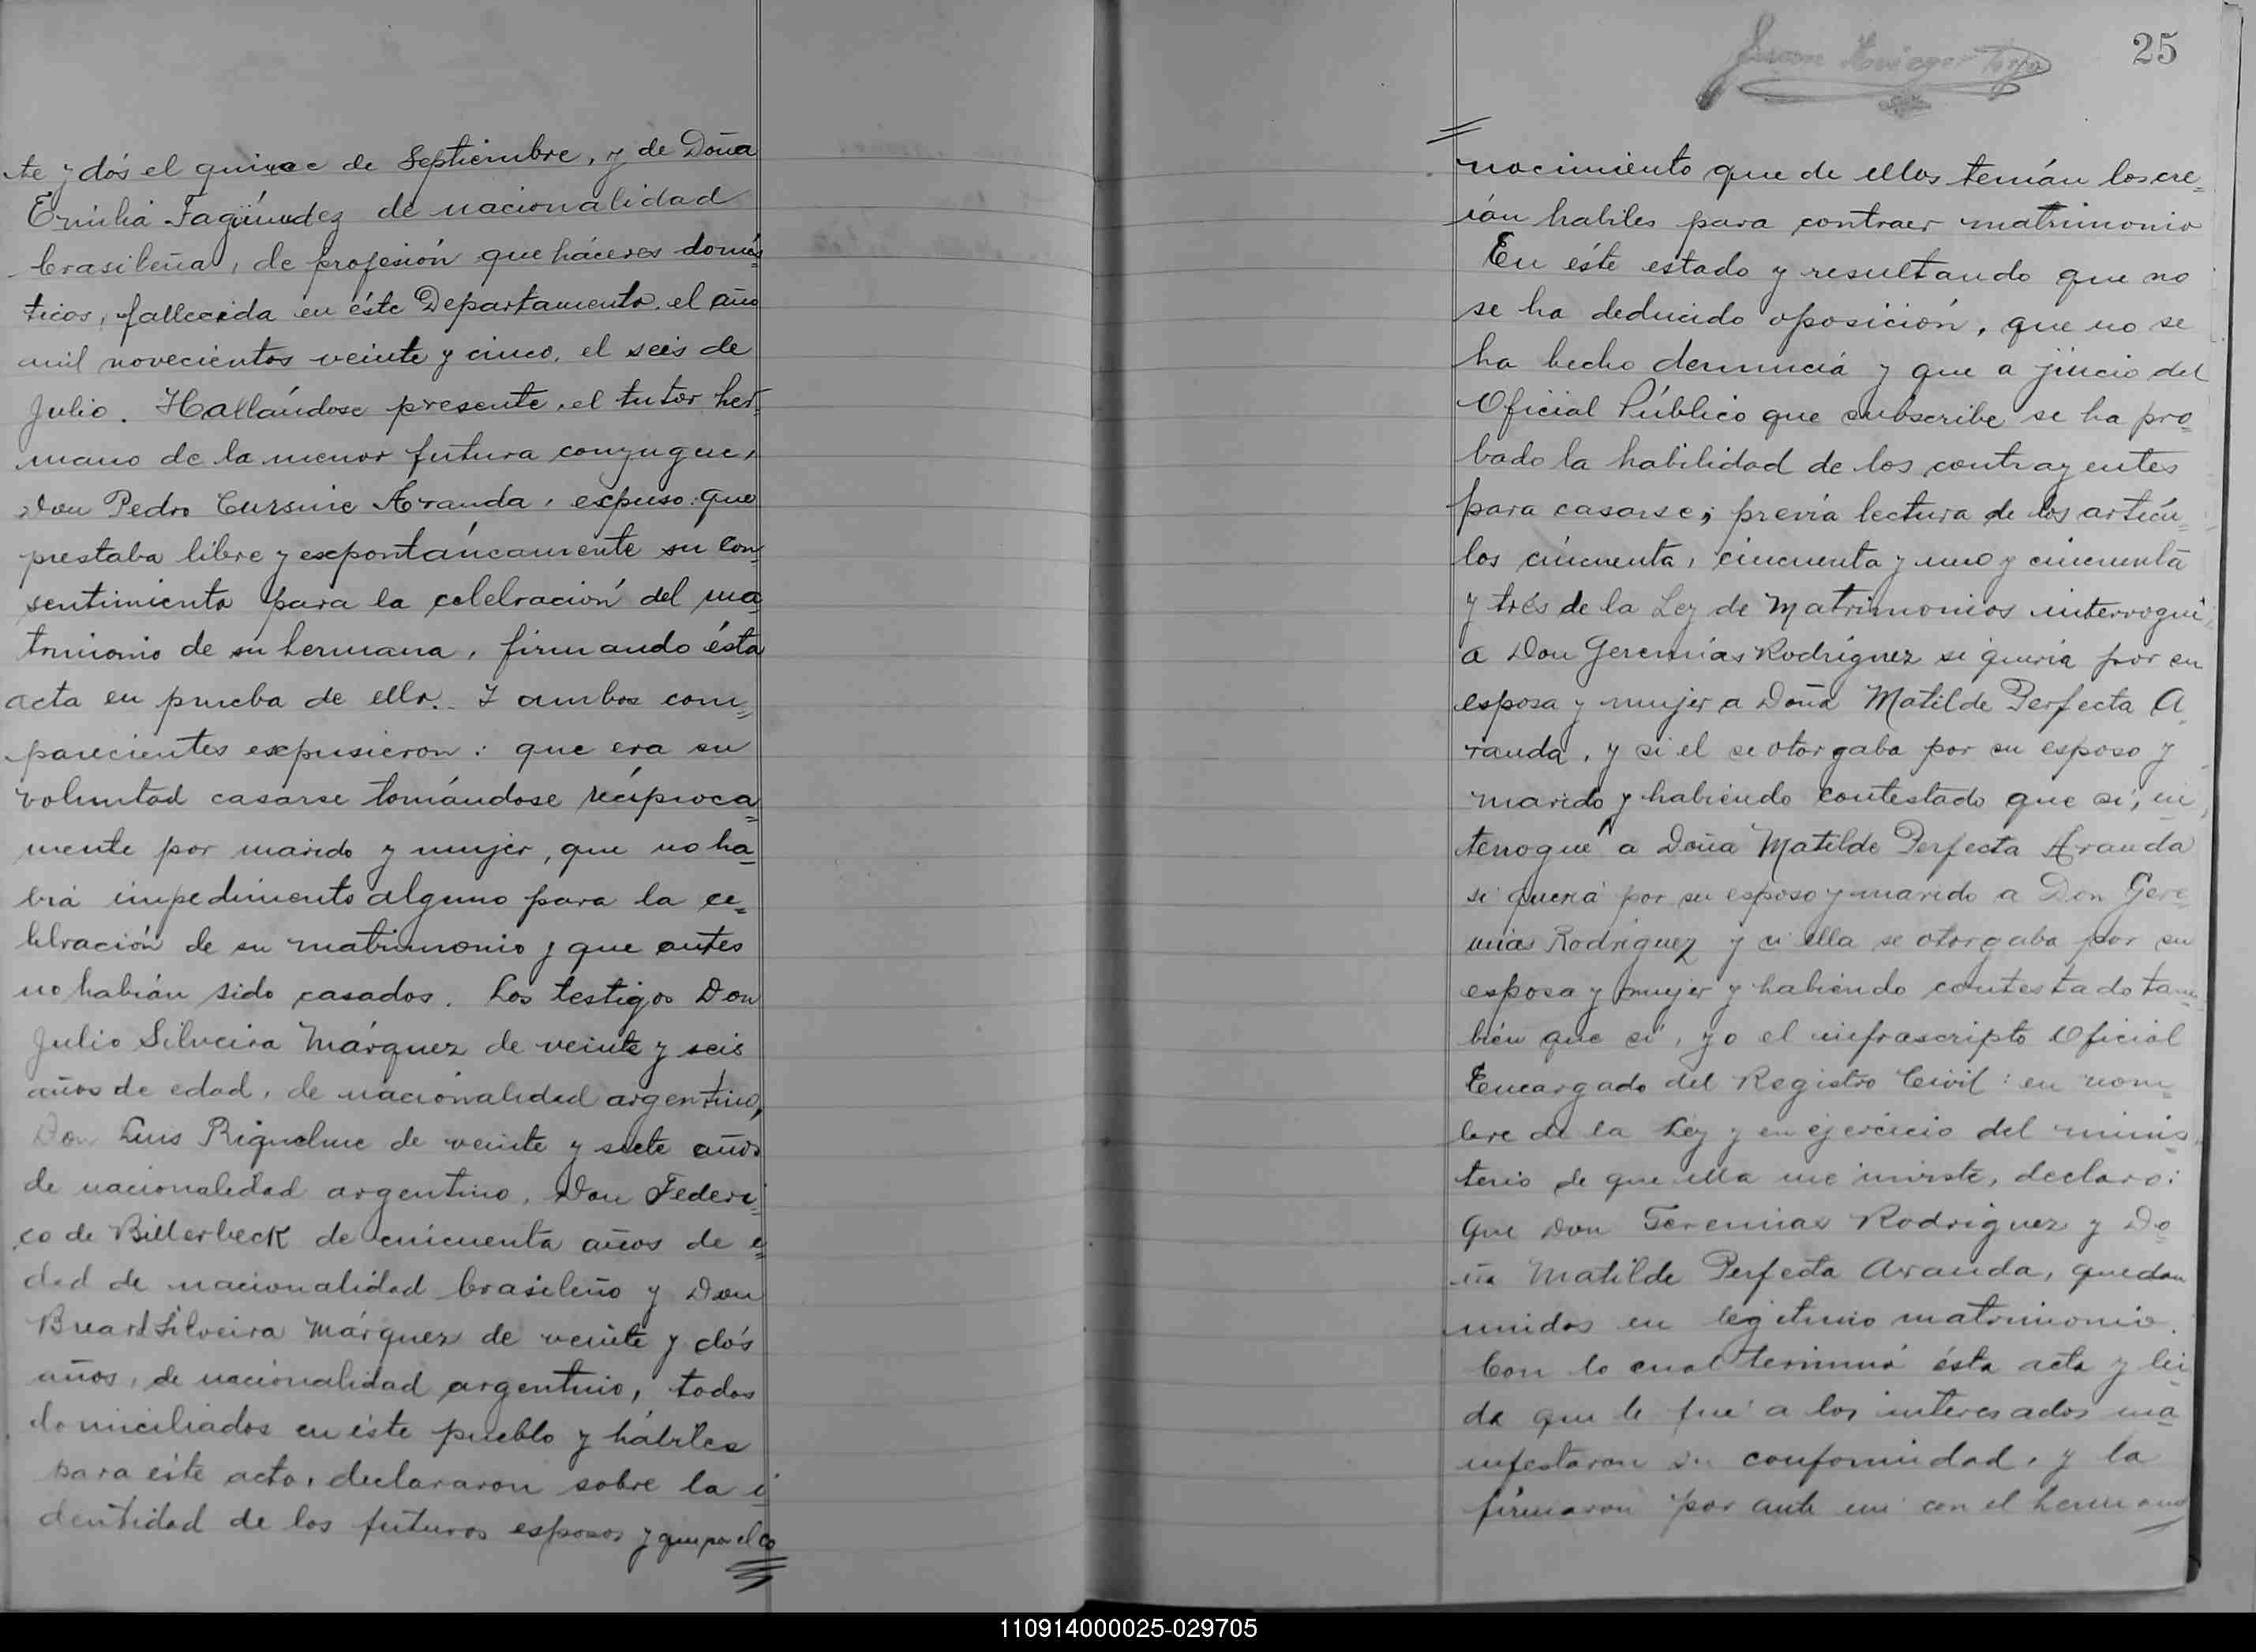 te y dós el quince de Septiembre, y de Doña
Emilia Fagúndez de nacionalidad
brasileña, de profesión que háceres domés
ticos, fallecida en éste Departamento, el año
mil novecientos veinte y cinco, el seis de
Julio. Hallándose presente, el tutor her-
mano de la menor futura conyugue,
Don Pedro Aranda, expuso: que
prestaba libre y expontáneamente su con=
sentimiento para la celebración del ma
trimonio de su hermana, firmando ésta
acta en prueba de ello.- Y ambos com=
parecientes expusieron: que era su
voluntad casarse tomándose recíproca=
mente por marido y mujer, que no ha=
bía impedimento alguno para la ce=
lebración de su matrimonio y que antes
no habían sido casados. Los testigos Don
Julio Silveira Márquez de veinte y seis
años de edad, de nacionalidad argentino,
Don Luis Riquelme de veinte y siete años
de nacionalidad argentino, Don Federi=
co de Billerbeck de cincuenta años de e=
dad de nacionalidad brasileño y Don
Silveira Márquez de veinte y dós
años, de nacionalidad argentino, todos
domiciliados en éste pueblo y hábiles
para éste acto, declararon sobre la i=
dentidad de los futuros esposos y que por el co
25
nocimiento que de ellos tenían los cre=
ían habiles para contraer matrimonio
En éste estado y resultando que no
se ha deducido oposición, que no se
ha hecho denuncia y que a juicio del
Oficial Público que subscribe se ha pro=
bado la habilidad de los contrayentes
para casarse; previa lectura de los artícu=
los cincuenta, cincuenta y uno y cincuenta
y trés de la Ley de Matrimonios interrogué
a Don Geremías Rodríguez si quería por su
esposa y mujer a Doña Matilde Perfecta A
randa, y si el se otorgaba por su esposo y
marido y habiendo contestado que sí, in=
terrogué a Doña Matilde Perfecta Aranda
si quería por su esposo y marido a Don Gere=
mías Rodríguez y si ella se otorgaba por su
esposa y mujer y habiendo contestado tam=
bién que sí, yo el infrascripto Oficial
Encargado del Registro Civil: en nom=
bre de la Ley y en ejercicio del minis=
terio de que ella me inviste, declaro:
Que Don Geremias Rodriguez y Do=
ña Matilde Perfecta Aranda, quedan
unidos en legítimo matrimonio.
Con lo cual terminó ésta acta y leí=
da que le fué a los interesados ma=
nifestaron su conformidad, y la
firmaron por ante mí con el hermano
110914000025-029705